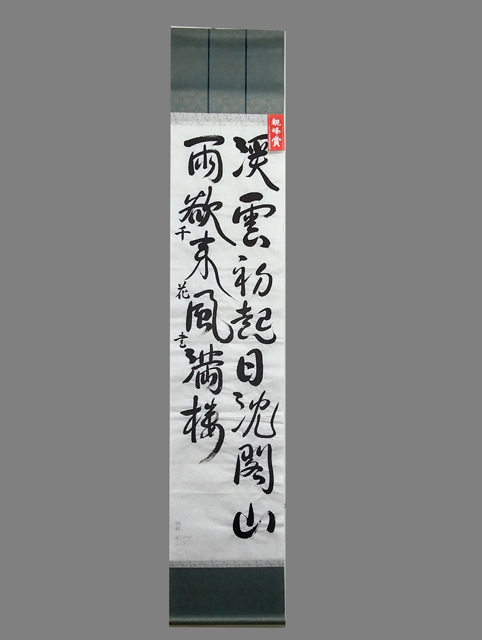 渓雲初起日沈閣山
雨欲来風満楼
千花書
親峰賞